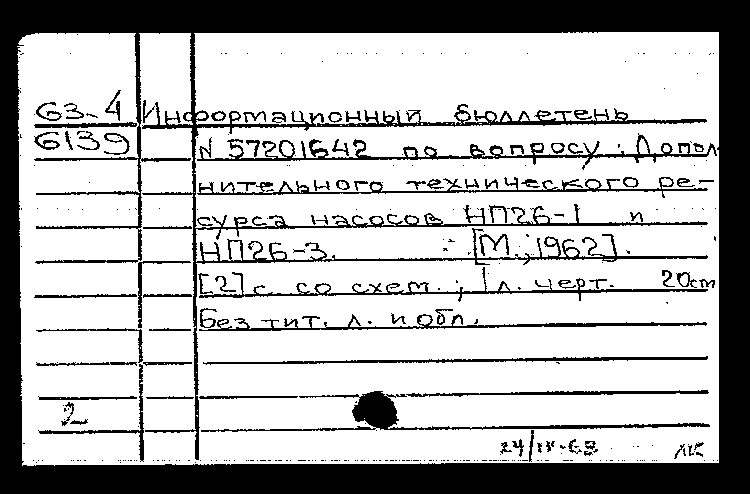 63-4 Информационный бюллетень
6139 N 57201642 по вопросу: Допол-
нительного технического ре-
сурса насосов НП26-1 и
НП26-3. [М., 1962].
[2] с. со схем.; 1 л. черт. 20см
Без тит. л. и обл.
2
24/IV-63